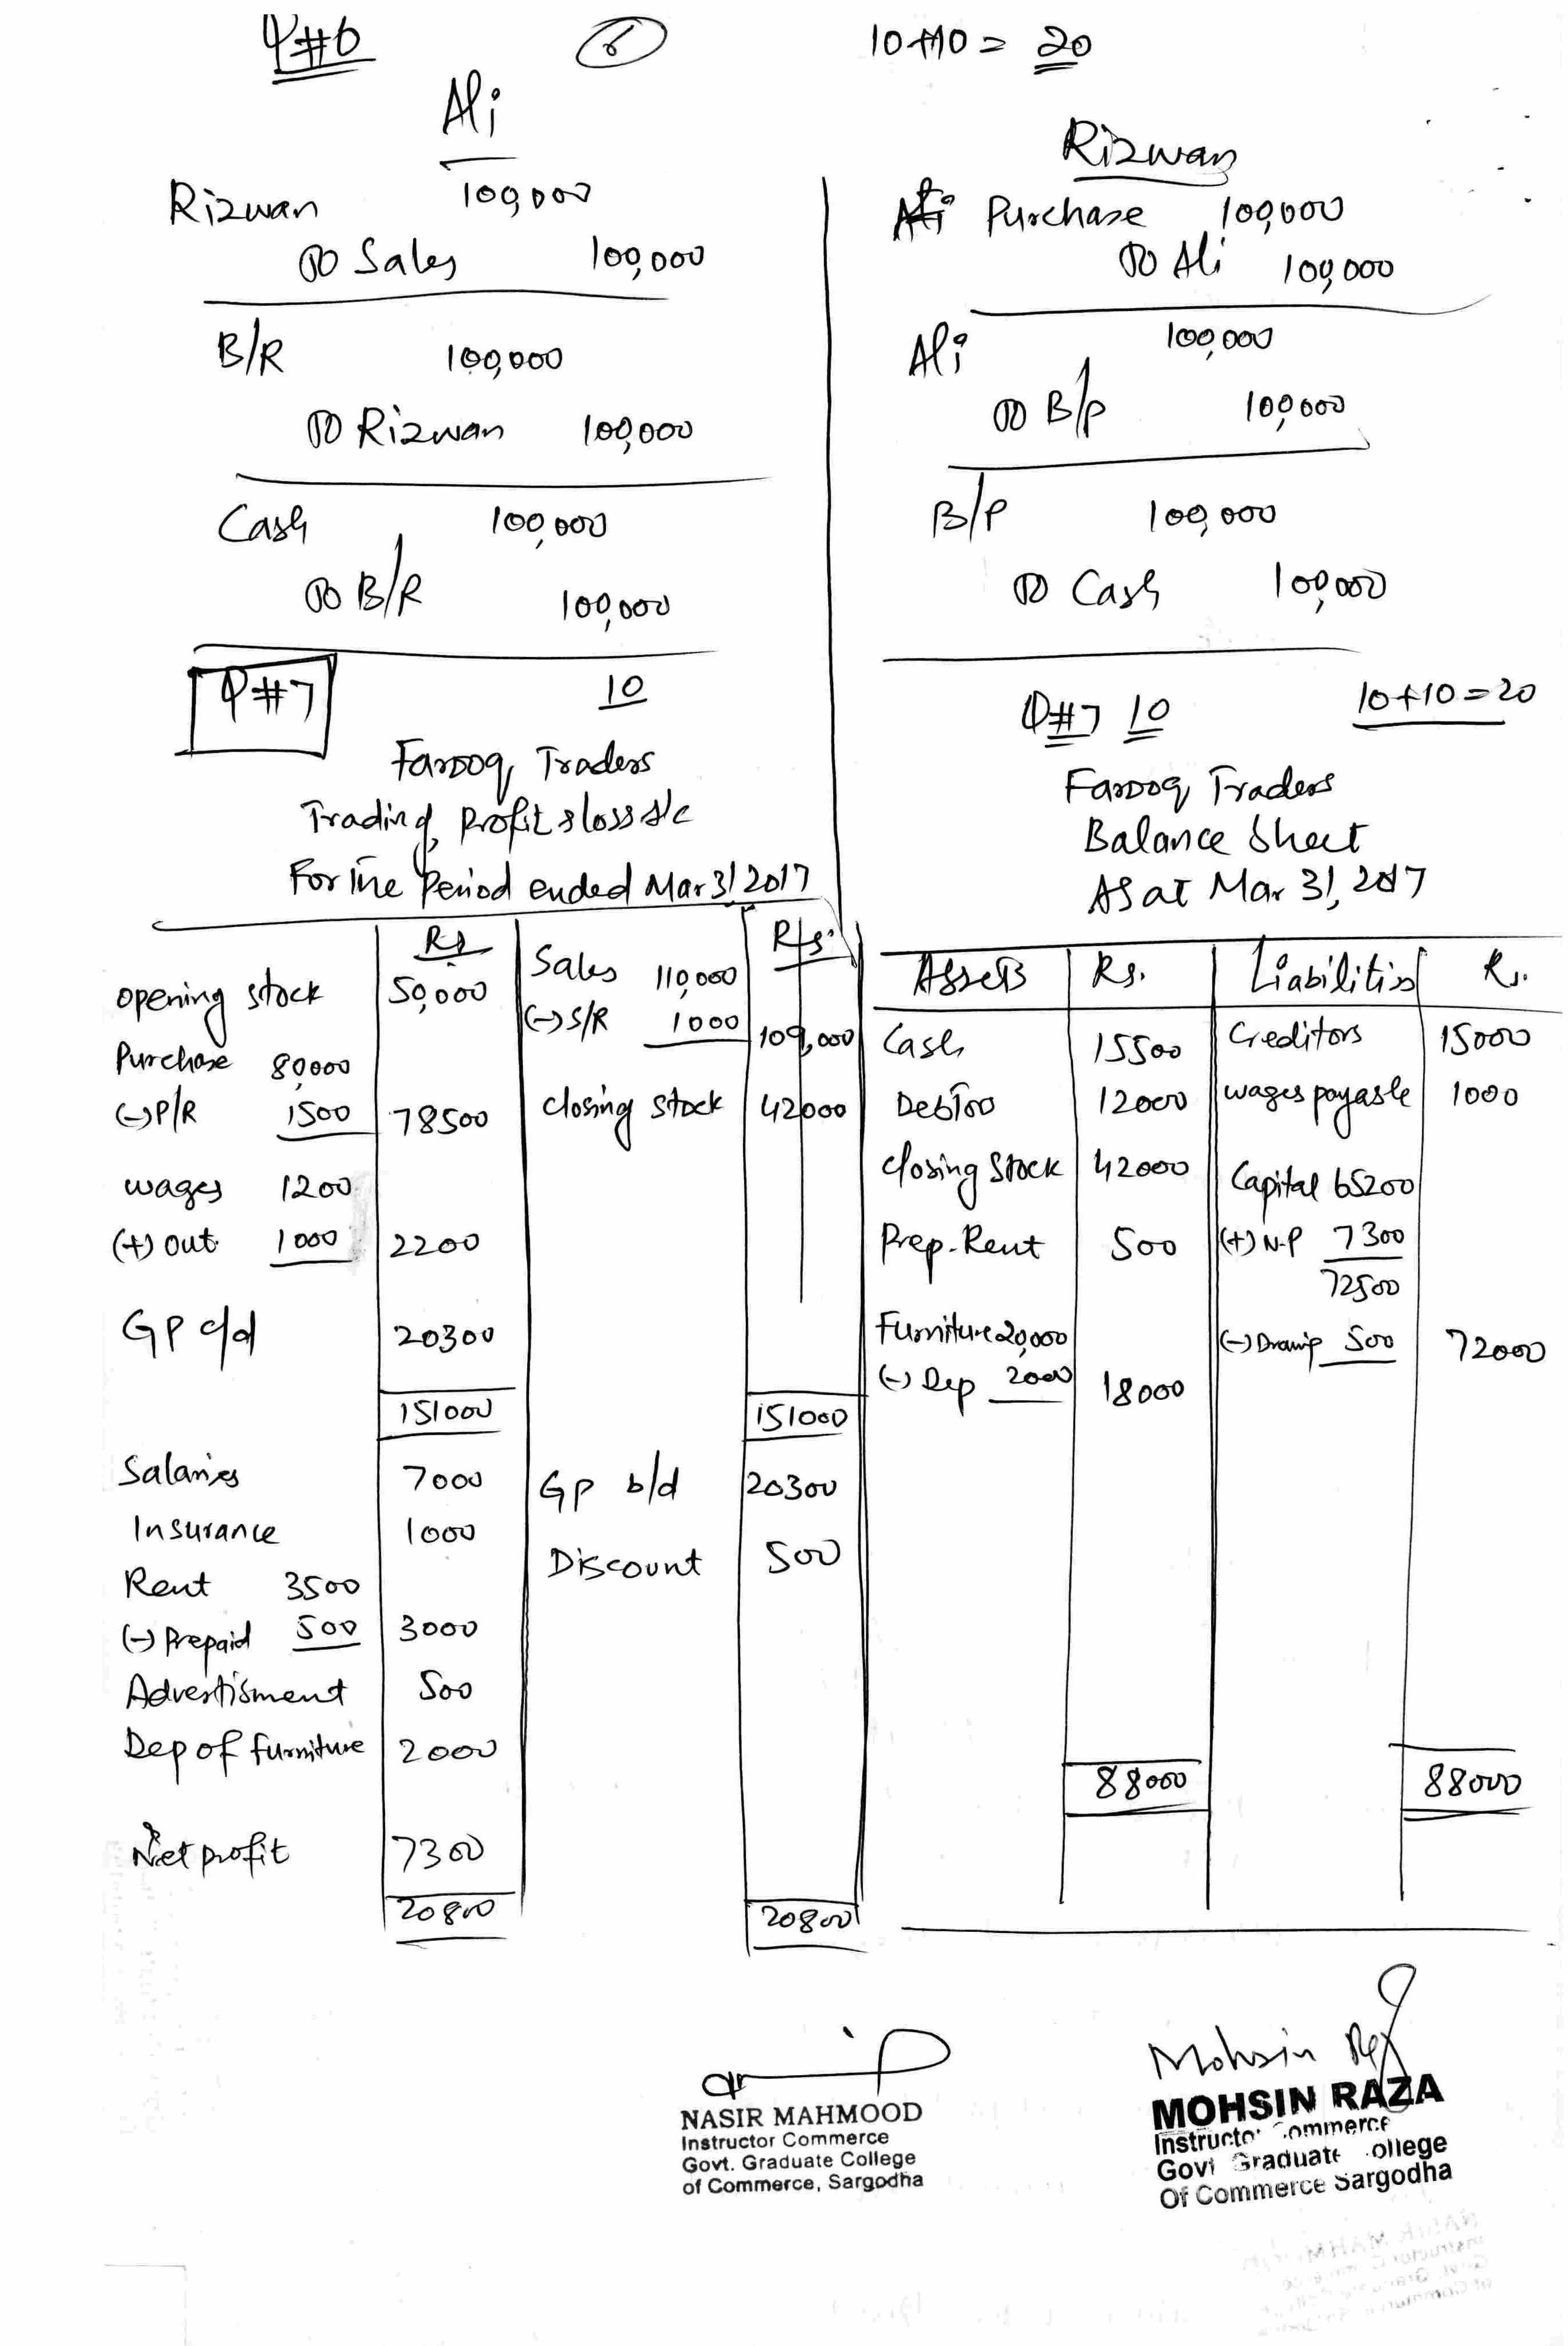 Q#6
6
10+10 = 20
Ali
Rizwan 100,000
To Sales 100,000
B/R 100,000
To Rizwan 100,000
Cash 100,000
To B/R 100,000
Rizwan
Purchase 100,000
To Ali 100,000
Ali 100,000
To B/P 100,000
B/P 100,000
To Cash 100,000
Q#7 10
Farooq Traders
Trading, Profit & loss A/c
For the Period ended Mar 31 2017
Rs Rs.
Opening stock 50,000 Sales 110,000
(-) S/R 1000 109,000
Purchase 80,000
(-) P/R 1500 78500 Closing stock 42000
wages 1200
(+) out. 1000 2200
GP c/d 20300
151000 151000
Salaries 7000 GP b/d 20300
Insurance 1000 Discount 500
Rent 3500
(-) Prepaid 500 3000
Advertisment 500
Dep of furniture 2000
Net profit 7300
20800 20800
Q#7 10 10+10=20
Farooq Traders
Balance Sheet
AS at Mar 31, 2017
Assets Rs. Liabilities Rs.
Cash 15500 Creditors 15000
Debtos 12000 wages payable 1000
Closing Stock 42000 Capital 65200
Prep. Rent 500 (+) N.P 7300
72500
Furniture 20,000 (-) Drawing 500 72000
(-) Dep 2000 18000
88000 88000
NASIR MAHMOOD
Instructor Commerce
Govt. Graduate College
of Commerce, Sargodha
Mohsin
MOHSIN RAZA
Instructor Commerce
Govt Graduate College
Of Commerce Sargodha